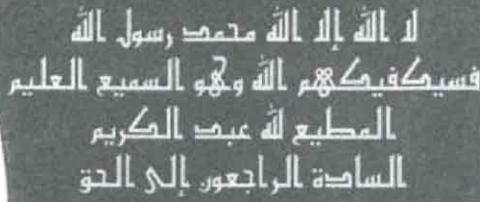 لا الله إلا الله محمد رسول الله
فسيكفيكهم الله وهو السميع العليم
المطيع لله عبد الكريم
السادة الراجعون إلى الحق